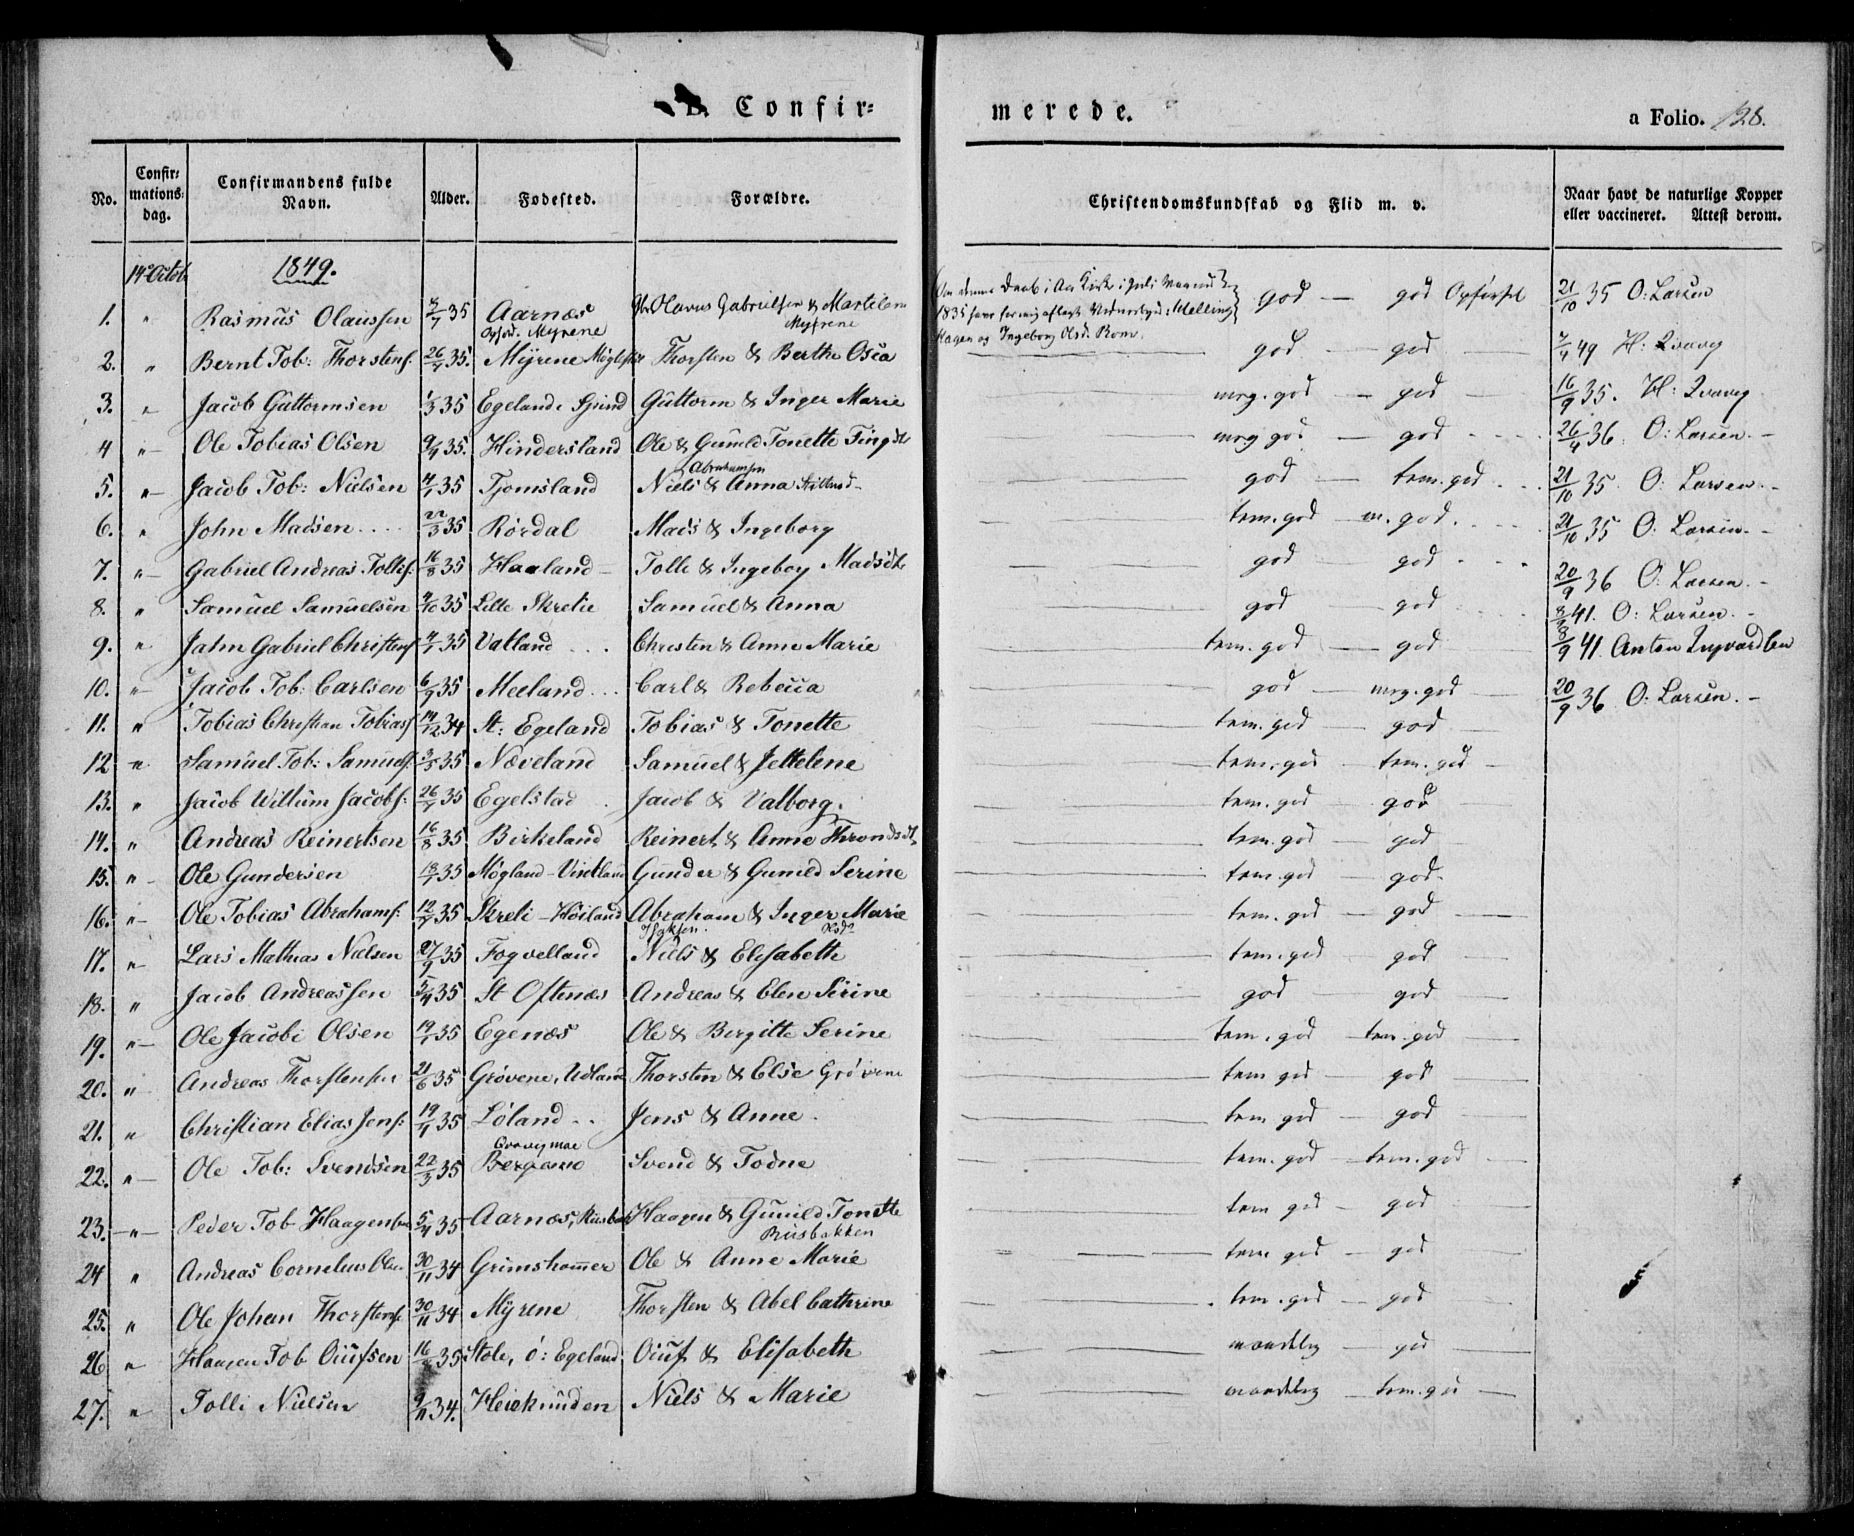 B. Confir=
merede.
a Folio. 128.
No. Confir= mations= dag. Confirmandens fulde Navn. Alder. Fødested. Forældre. Christendomskundskab og Flid m. v. Naar havt de naturlige Kopper eller vaccineret. Attest derom.
14de Octob 1849.
1. " Rasmus Olaussen /7 35 Aarnæs Opfød. Myrene Olavus Gabrielsen & Martilene Myrene
1835 Hagen og Ingeborg Olsd. Rom. god — god Opførsel 21/10 35 O: Larsen
2. " Bernt Tob: Thorstens. 26/7 35. Myrene Møglestu Thorsten & Berthe Osea god — god 49 H:
3. " Jacob Guttormsen 1/3 35 Egeland i Sjund Guttorm & Inger Marie meg. god — god 16/9 35. H:
4 " Ole Tobias Olsen 9/4 35. Hindersland Ole & Gunild Tonette Tingdt meg god — god 26/4 36. O: Larsen. -
5. " Jacob Tob: Nielsen 4/1 35 Tjomsland Niels Abrahamsen & Anna god — tem. god 21/10 35. O: Larsen. -
6. " John Madsen 22/3 35 Rørdal Mads & Ingeborg tem. god — m. god. 21/10 35 O: Larsen. -
7. " Gabriel Andreas Tollefs: 16/8 35 Haaland - Tolle & Ingeborg Madsdt god — god 20/9 36 O: Larsen. -
8. " Samuel Samuelsen 4/10 35 Lille Skretie Samuel & Anna god — god 41. O: Larsen. -
9. " Jahn Gabriel Christens 4/7 35 Vatland Christen & Anne Marie tem. god — god 8/9 41. Anton Ingvardsen
10. " Jacob Tob: Carlsen 6/9 35 Meeland Carl & Rebecca god — meg. god 20/9 36 O: Larsen. -
11. " Tobias Christian Tobias 14/12 34 St: Egeland Tobias & Tonette tem. god — god
12 " Samuel Tob: Samuels: 3/5 35 Næveland Samuel & Jettelene tem. god — tem. god
13. " Jacob Willum Jacobs: 26/7 35 Egelstad Jacob & Valborg. tem. god — god
14. " Andreas Reinertsen 16/8 35 Birkeland Reinert & Anne Throndsdt tem. god — god
15. " Ole Gundersen 18/1 35 Møgland - Vintland Gunder & Gunild Serine tem. god — god
16. " Ole Tobias Abrahams: 12/7 35 Skreli - Høiland Abraham Isaksen. & Inger Marie Olsd. tem. god — god
17. " Lars Mathias Nielsen 27/9 35 Fogvelland Niels & Elisabeth tem. god — god
18. " Jacob Andreassen 5/4 35 St Oftenæs Andreas & Elen Serine god — god
19. " Ole Jacobi Olsen 19/7 35 Egenæs Ole & Birgitte Serine tem. god — tem. god
20. " Andreas Thorstensen 21/6 35 Grøvene, Udland Thorsten & Else Grøvene tem god — god
21. " Christian Elias Jens: 19/4 35 Løland Jens & Anne. tem. god — god
22. " Ole Tob: Svendsen 22/3 35 Svend & Todne tem. god — tem. god
23. " Peder Tob Haagensen 5/4 35 Aarnæs, Riisbak Haagen & Gunild Tonette Riisbakken tem god — god
24 " Andreas Cornelius Olsen 30/11 34 Grimshammer Ole & Anne Marie tem. god — god
25. " Ole Johan Thorstens. 30/11 34 Myrene Thorsten & Abel Cathrine tem. god — god
26 " Haagen Tob Oiufsen 16/ 35 Stole, ø: Egeland. Oiuf & Elisabeth maadelig — god
27. " Tolli Nielsen 9/11 34. Heiekunden Niels & Marie maadelig — tem. god